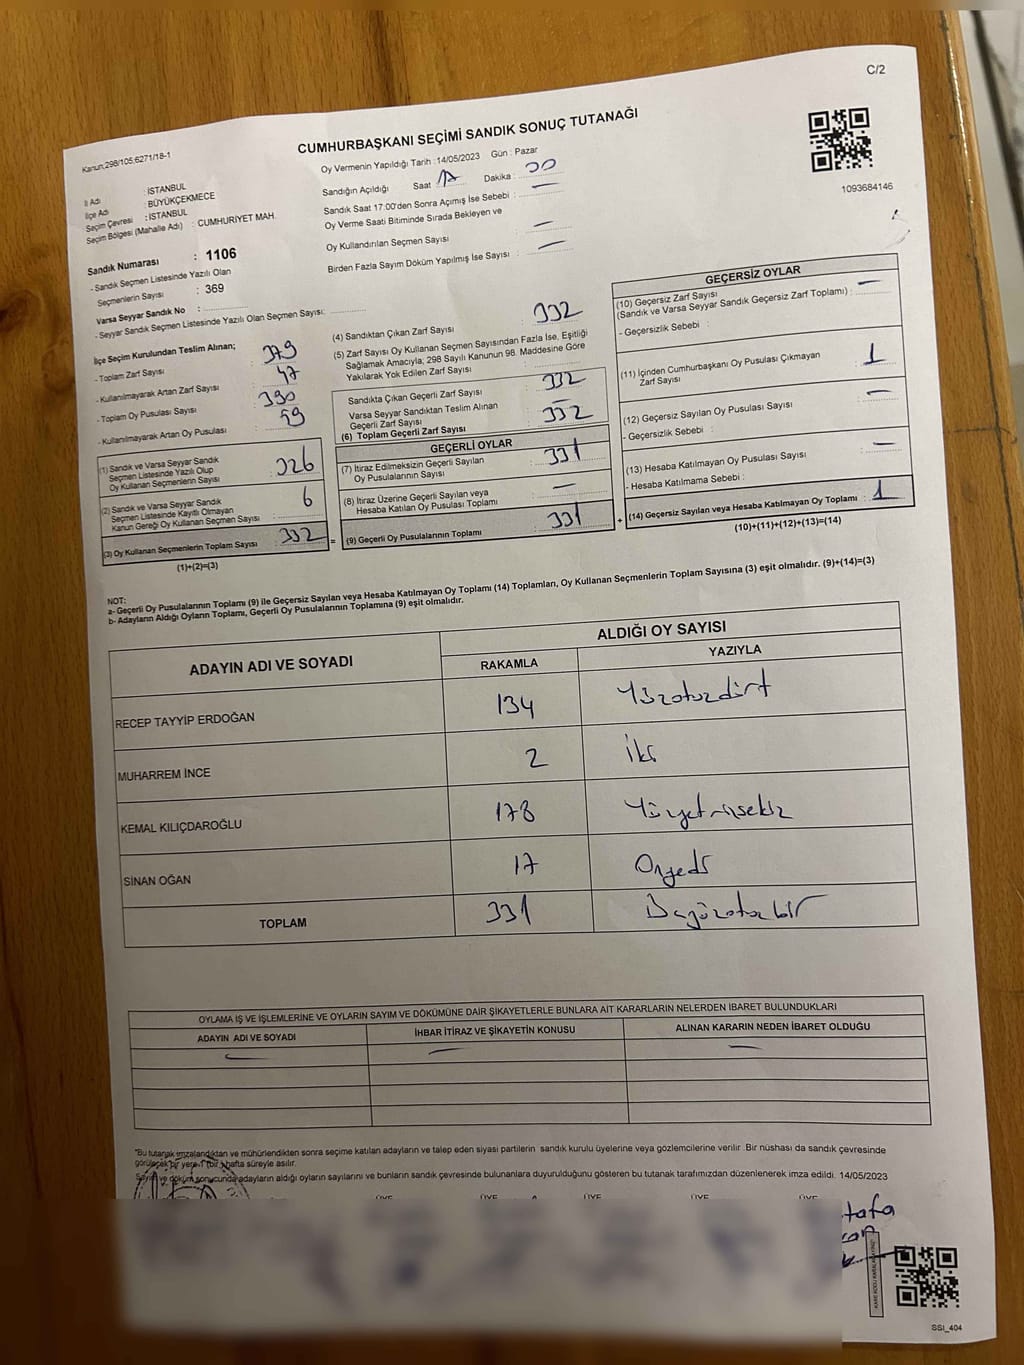 C/2
Kanun;298/105;6271/18-1
CUMHURBAŞKANI SEÇİMİ SANDIK SONUÇ TUTANAĞI
İl Adı : İSTANBUL
İlçe Adı : BÜYÜKÇEKMECE
Seçim Çevresi : İSTANBUL
Seçim Bölgesi (Mahalle Adı) : CUMHURİYET MAH.
Sandık Numarası : 1106
- Sandık Seçmen Listesinde Yazılı Olan
Seçmenlerin Sayısı : 369
Varsa Seyyar Sandık No :
- Seyyar Sandık Seçmen Listesinde Yazılı Olan Seçmen Sayısı:
Oy Vermenin Yapıldığı Tarih : 14/05/2023 Gün : Pazar
Sandığın Açıldığı Saat 17 Dakika : 00
Sandık Saat 17:00'den Sonra Açımış İse Sebebi : —
Oy Verme Saati Bitiminde Sırada Bekleyen ve
Oy Kullandırılan Seçmen Sayısı —
Birden Fazla Sayım Döküm Yapılmış İse Sayısı : —
1093684146
İlçe Seçim Kurulundan Teslim Alınan;
- Toplam Zarf Sayısı : 379
- Kullanılmayarak Artan Zarf Sayısı : 47
- Toplam Oy Pusulası Sayısı : 390
- Kullanılmayarak Artan Oy Pusulası : 59
(1) Sandık ve Varsa Seyyar Sandık
Seçmen Listesinde Yazılı Olup
Oy Kullanan Seçmenlerin Sayısı : 326
(2) Sandık ve Varsa Seyyar Sandık
Seçmen Listesinde Kayıtlı Olmayan
Kanun Gereği Oy Kullanan Seçmen Sayısı : 6
(3) Oy Kullanan Seçmenlerin Toplam Sayısı : 332 =
(1)+(2)=(3)
(4) Sandıktan Çıkan Zarf Sayısı : 332
(5) Zarf Sayısı Oy Kullanan Seçmen Sayısından Fazla İse, Eşitliği
Sağlamak Amacıyla; 298 Sayılı Kanunun 98. Maddesine Göre
Yakılarak Yok Edilen Zarf Sayısı :
Sandıkta Çıkan Geçerli Zarf Sayısı : 332
Varsa Seyyar Sandıktan Teslim Alınan
Geçerli Zarf Sayısı : —
(6) Toplam Geçerli Zarf Sayısı : 332
GEÇERLİ OYLAR
(7) İtiraz Edilmeksizin Geçerli Sayılan
Oy Pusulasının Sayısı : 331
(8) İtiraz Üzerine Geçerli Sayılan veya
Hesaba Katılan Oy Pusulası Toplamı : —
(9) Geçerli Oy Pusulalarının Toplamı : 331 +
GEÇERSİZ OYLAR
(10) Geçersiz Zarf Sayısı
(Sandık ve Varsa Seyyar Sandık Geçersiz Zarf Toplamı) : —
- Geçersizlik Sebebi :
(11) İçinden Cumhurbaşkanı Oy Pusulası Çıkmayan
Zarf Sayısı : 1
(12) Geçersiz Sayılan Oy Pusulası Sayısı : —
- Geçersizlik Sebebi :
(13) Hesaba Katılmayan Oy Pusulası Sayısı : —
- Hesaba Katılmama Sebebi :
(14) Geçersiz Sayılan veya Hesaba Katılmayan Oy Toplamı : 1
(10)+(11)+(12)+(13)=(14)
NOT:
a- Geçerli Oy Pusulalarının Toplamı (9) ile Geçersiz Sayılan veya Hesaba Katılmayan Oy Toplamı (14) Toplamları, Oy Kullanan Seçmenlerin Toplam Sayısına (3) eşit olmalıdır. (9)+(14)=(3)
b- Adayların Aldığı Oyların Toplamı, Geçerli Oy Pusulalarının Toplamına (9) eşit olmalıdır.
ADAYIN ADI VE SOYADI
ALDIĞI OY SAYISI
RAKAMLA YAZIYLA
RECEP TAYYİP ERDOĞAN 134 Yüzotuzdört
MUHARREM İNCE 2 İki
KEMAL KILIÇDAROĞLU 178 Yüzyetmişsekiz
SİNAN OĞAN 17 Onyedi
TOPLAM 331 Üçyüzotuzbir
OYLAMA İŞ VE İŞLEMLERİNE VE OYLARIN SAYIM VE DÖKÜMÜNE DAİR ŞİKAYETLERLE BUNLARA AİT KARARLARIN NELERDEN İBARET BULUNDUKLARI
ADAYIN ADI VE SOYADI İHBAR İTİRAZ VE ŞİKAYETİN KONUSU ALINAN KARARIN NEDEN İBARET OLDUĞU
— — —
*Bu tutanak imzalandıktan ve mühürlendikten sonra seçime katılan adayların ve talep eden siyasi partilerin sandık kurulu üyelerine veya gözlemcilerine verilir. Bir nüshası da sandık çevresinde
görülecek bir yere 1 (bir) hafta süreyle asılır.
Sayım ve döküm sonucunda adayların aldığı oyların sayılarını ve bunların sandık çevresinde bulunanlara duyurulduğunu gösteren bu tutanak tarafımızdan düzenlenerek imza edildi. 14/05/2023
ÜYE ÜYE ÜYE ÜYE ÜYE
tafa
SSI_404